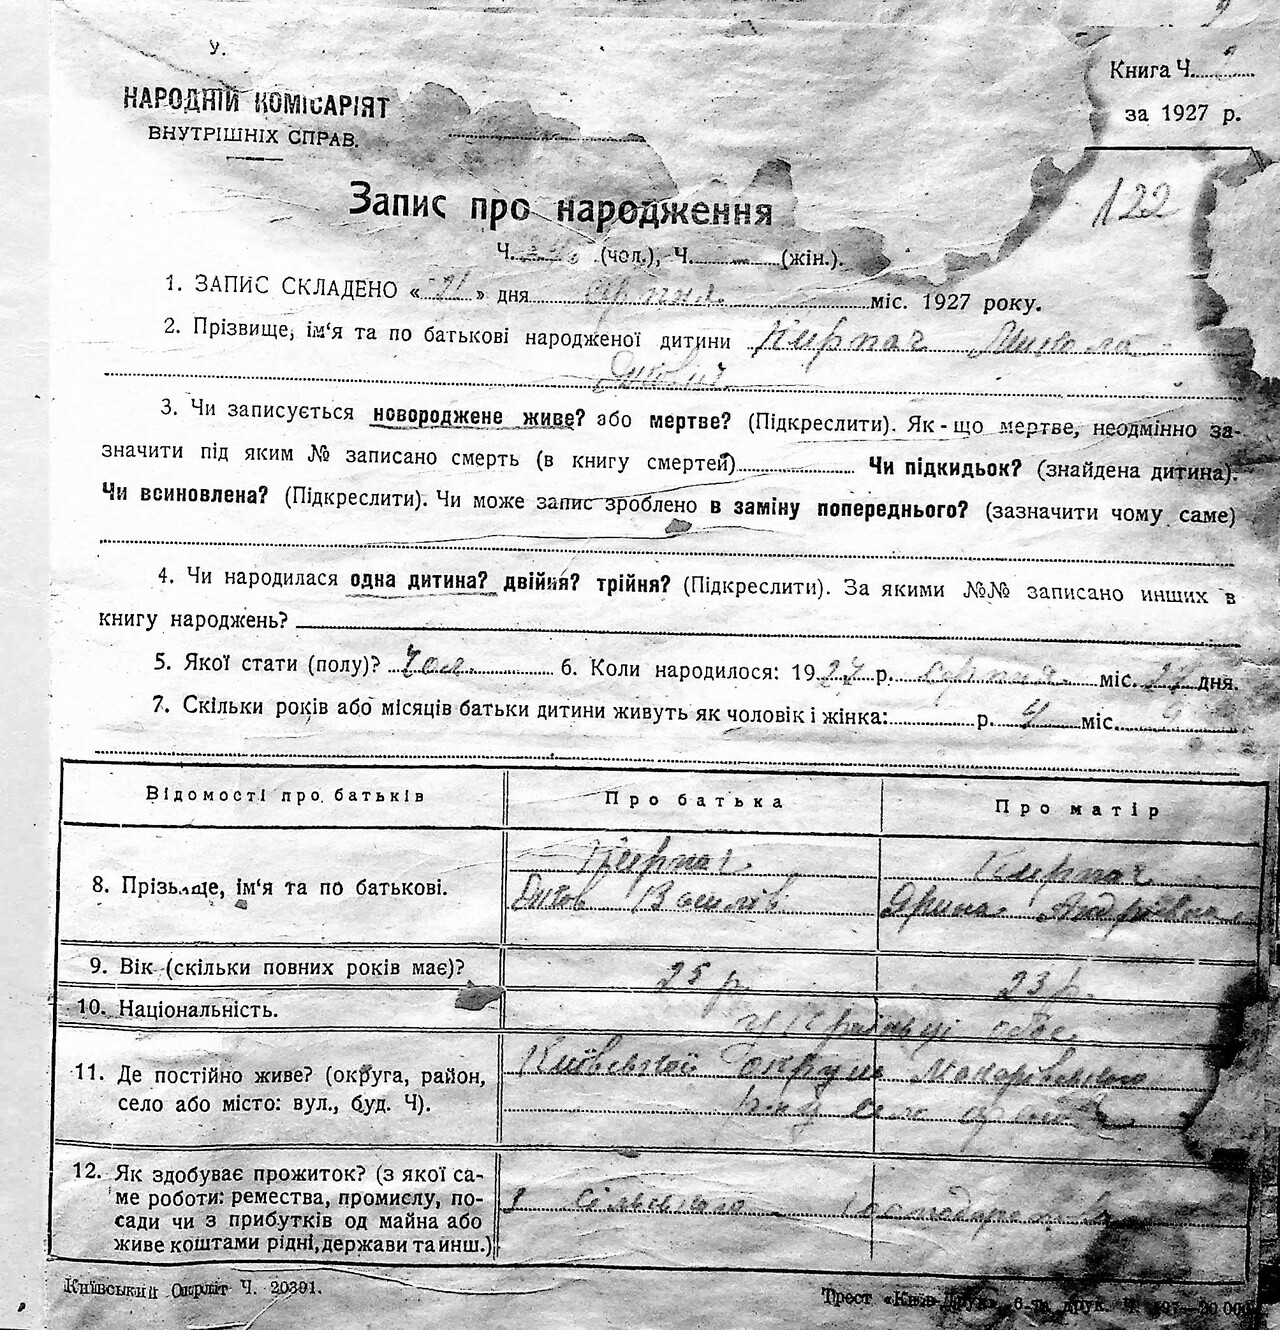 У.
НАРОДНІЙ КОМІСАРІЯТ
ВНУТРІШНІХ СПРАВ.
Книга Ч.
за 1927 р.
122
Запис про народження
Ч. (чол.), Ч. (жін.).
1. ЗАПИС СКЛАДЕНО « » дня серпня міс. 1927 року.
2. Прізвище, ім‘я та по батькові народженої дитини Кирпач Микола
3. Чи записується новороджене живе? або мертве? (Підкреслити). Як-що мертве, неодмінно за-
значити під яким № записано смерть (в книгу смертей) Чи підкидьок? (знайдена дитина).
Чи всиновлена? (Підкреслити). Чи може запис зроблено в заміну попереднього? (зазначити чому саме)
4. Чи народилася одна дитина? двійня? трійня? (Підкреслити). За якими №№ записано инших в
книгу народжень?
5. Якої стати (полу)? Чол. 6. Коли народилося: 1927 р. серпня міс. дня.
7. Скільки років або місяців батьки дитини живуть як чоловік і жінка: р. міс.
Відомості про батьків Про батька Про матір
8. Прізьвище, ім‘я та по батькові. Кирпач Кирпач
Василів Ярина Андріївна
9. Вік (скільки повних років має)? 25 р. 23 р.
10. Національність. Українці обоє
11. Де постійно живе? (округа, район, Київської округи Макарівського
село або місто: вул., буд. Ч). село
12. Як здобуває прожиток? (з якої са-
ме роботи: ремества, промислу, по- З сільського господарства
сади чи з прибутків од майна або
живе коштами рідні, держави та инш.)
Київський Окрліт Ч. 20391.
Трест «Київ-Друк», 6-та друк.